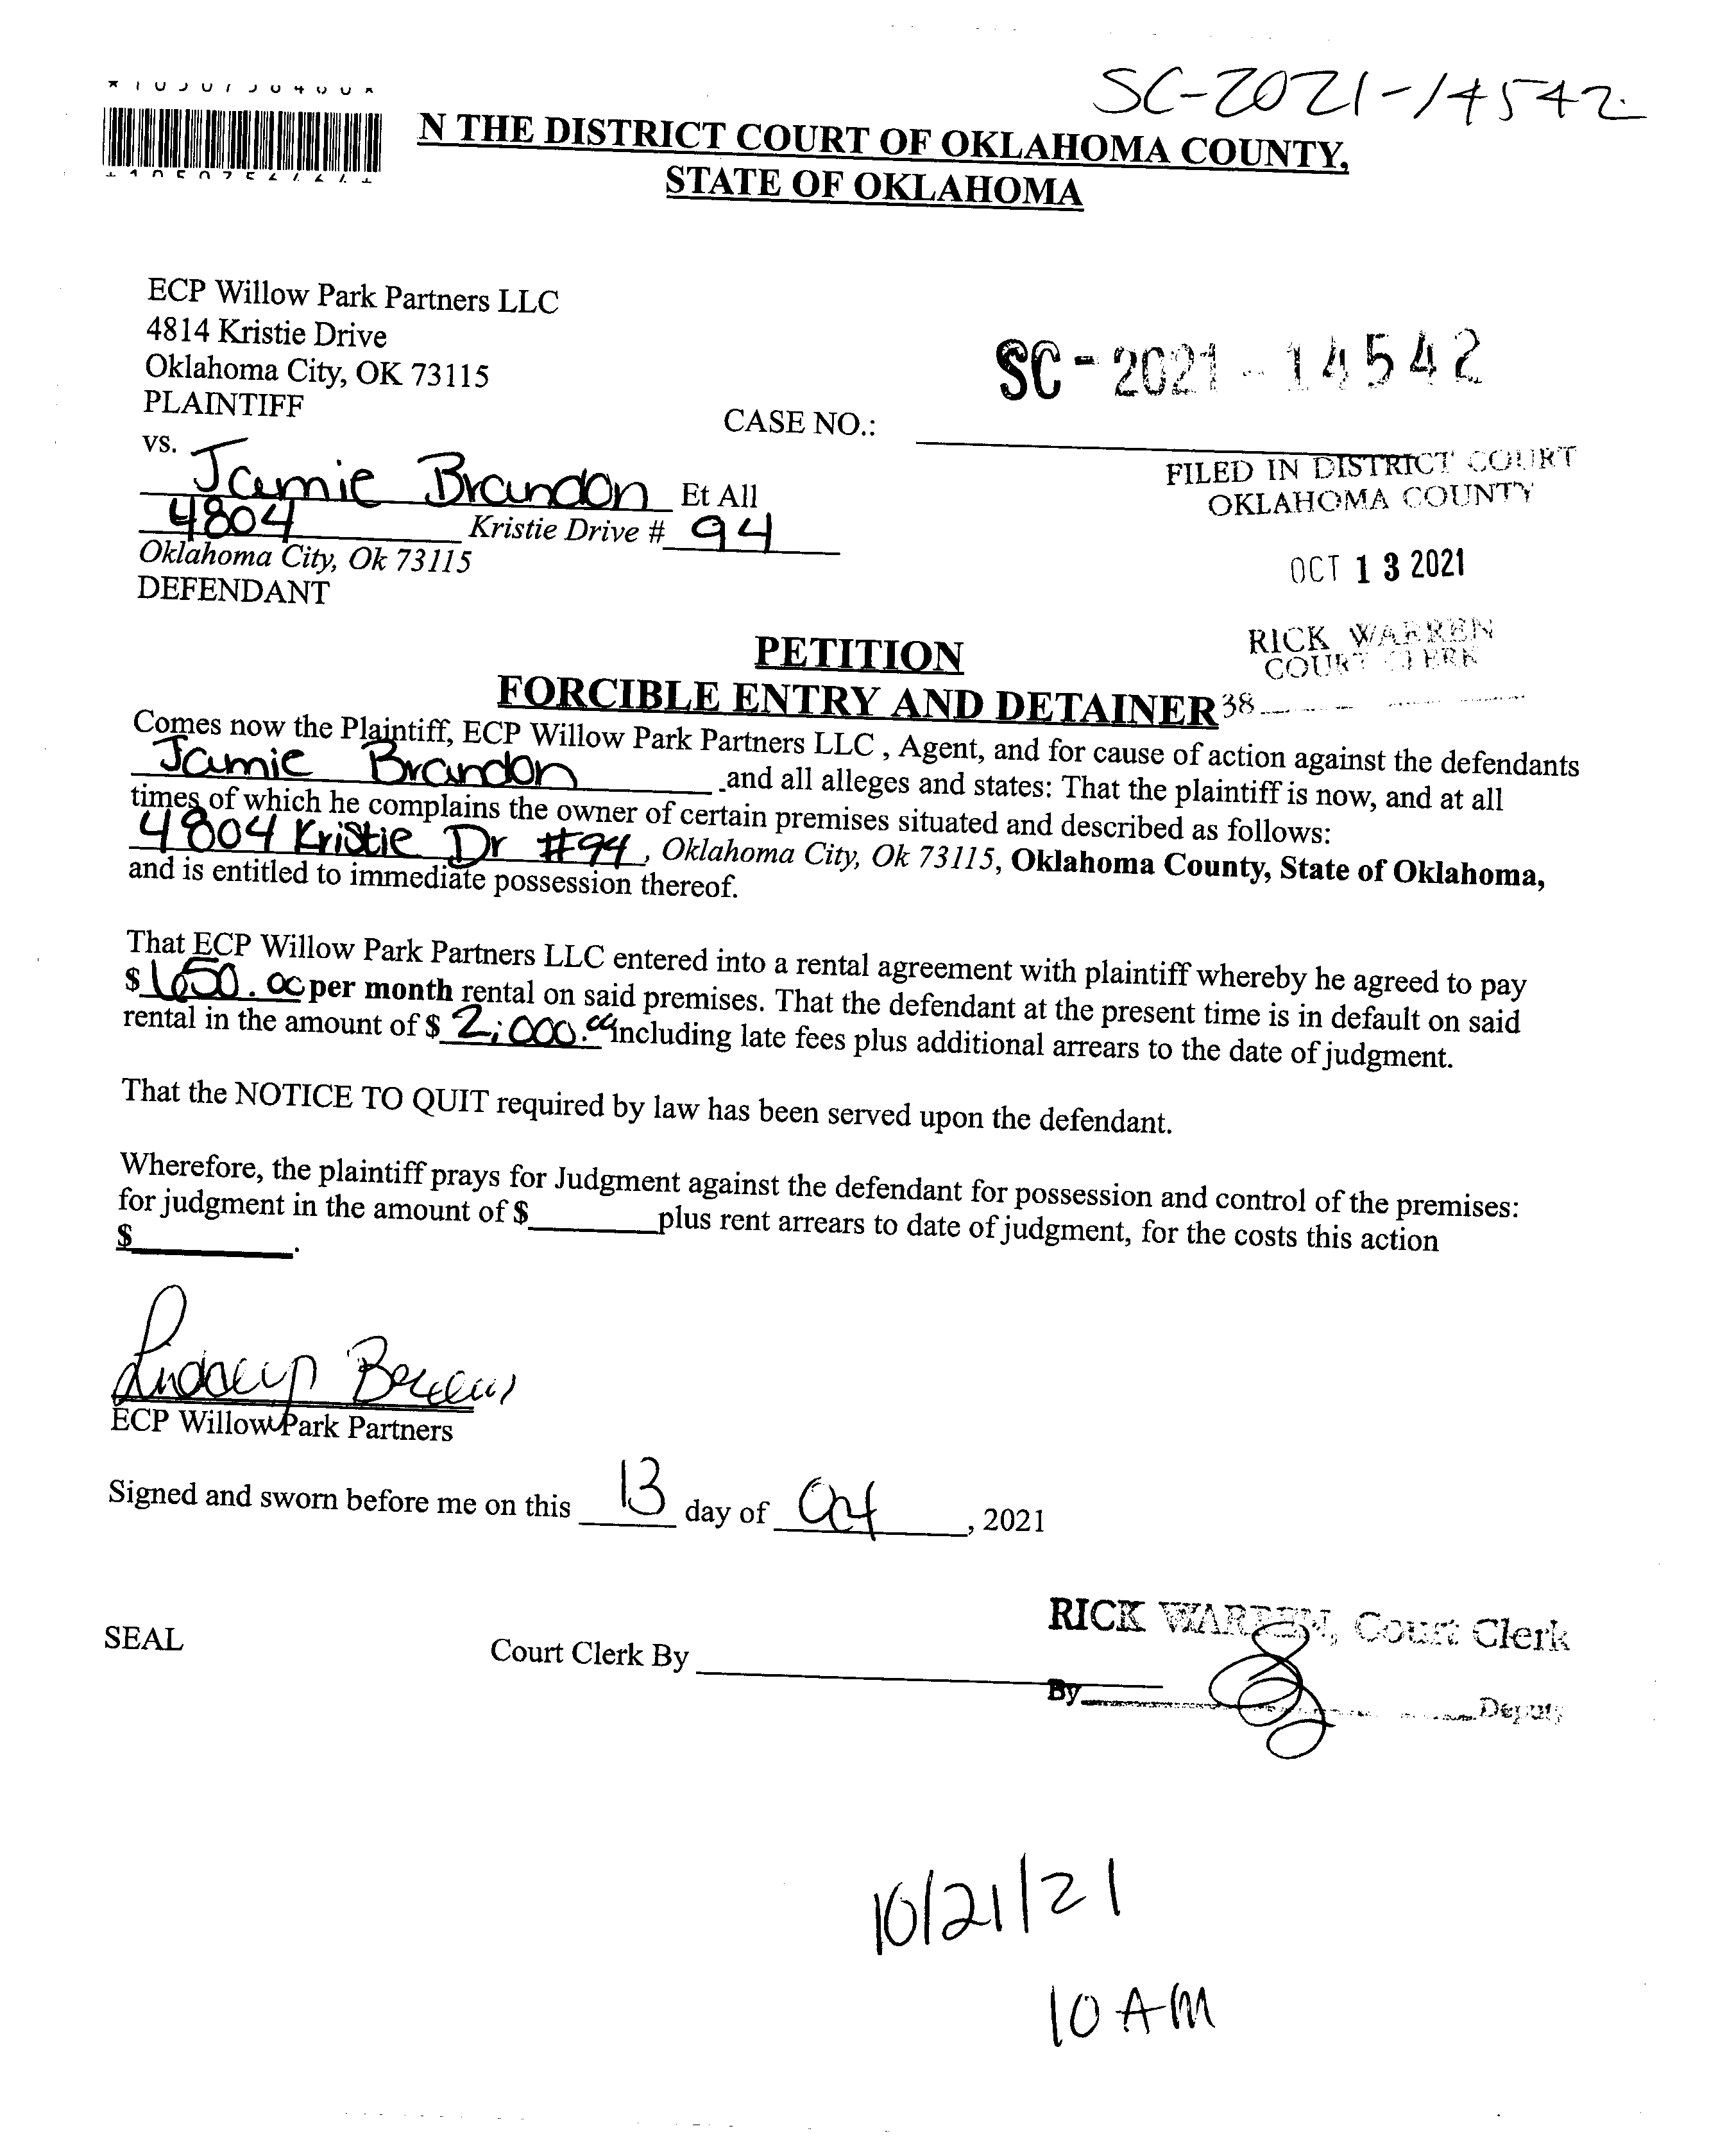 SC-2021-14542
N THE DISTRICT COURT OF OKLAHOMA COUNTY,
STATE OF OKLAHOMA
ECP Willow Park Partners LLC
4814 Kristie Drive
Oklahoma City, OK 73115
PLAINTIFF
SC-2021-14542
CASE NO.:
vs.
Jamie Brandon Et All
4804 Kristie Drive # 94
Oklahoma City, Ok 73115
DEFENDANT
FILED IN DISTRICT COURT
OKLAHOMA COUNTY
OCT 13 2021
RICK WARREN
COURT CLERK
38
PETITION
FORCIBLE ENTRY AND DETAINER
Comes now the Plaintiff, ECP Willow Park Partners LLC , Agent, and for cause of action against the defendants
Jamie Brandon and all alleges and states: That the plaintiff is now, and at all
times of which he complains the owner of certain premises situated and described as follows:
4804 Kristie Dr #94, Oklahoma City, Ok 73115, Oklahoma County, State of Oklahoma,
and is entitled to immediate possession thereof.
That ECP Willow Park Partners LLC entered into a rental agreement with plaintiff whereby he agreed to pay
$ per month rental on said premises. That the defendant at the present time is in default on said
rental in the amount of $ 2,000. including late fees plus additional arrears to the date of judgment.
That the NOTICE TO QUIT required by law has been served upon the defendant.
Wherefore, the plaintiff prays for Judgment against the defendant for possession and control of the premises:
for judgment in the amount of $ plus rent arrears to date of judgment, for the costs this action
$ .
ECP Willow Park Partners
Signed and sworn before me on this 13 day of Oct, 2021
SEAL
Court Clerk By
RICK WARREN, Court Clerk
By Deputy
10/21/21
10 AM